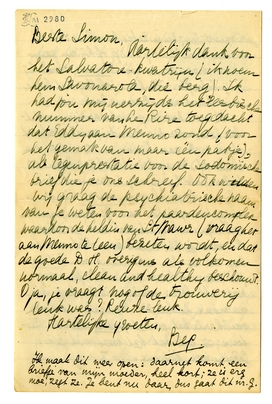 2280
Beste Simon,
Hartelijk dank voor
het Salvatore-kwatrijn (ik noem
hem Savonarola, die berg). Ik
had jou mijnerzijds het
nummer van toegedacht
dat Eddy aan Menno zond (voor
het gemak van maar één pakje),
als tegenprestatie voor de Sodomische
brief die je ons schreef. Ook wilden
wij graag de psychiatrische naam
van je weten voor het paardencomplex
waarvan de heldin van St Mawr (vraag het
aan Menno te leen) bezeten wordt, en dat
de goede D.H. overigens als volkomen
normaal, clean and healthy beschouwt.
O ja, je vraagt nog of de trouwerij
leuk was? Reuze leuk.
Hartelijke groeten,
Bep
Ik maak dit weer open: daarnet komt een
briefje van mijn moeder, heel kort; ze is erg
moe, zegt ze. Je bent nu daar, dus gaat dit